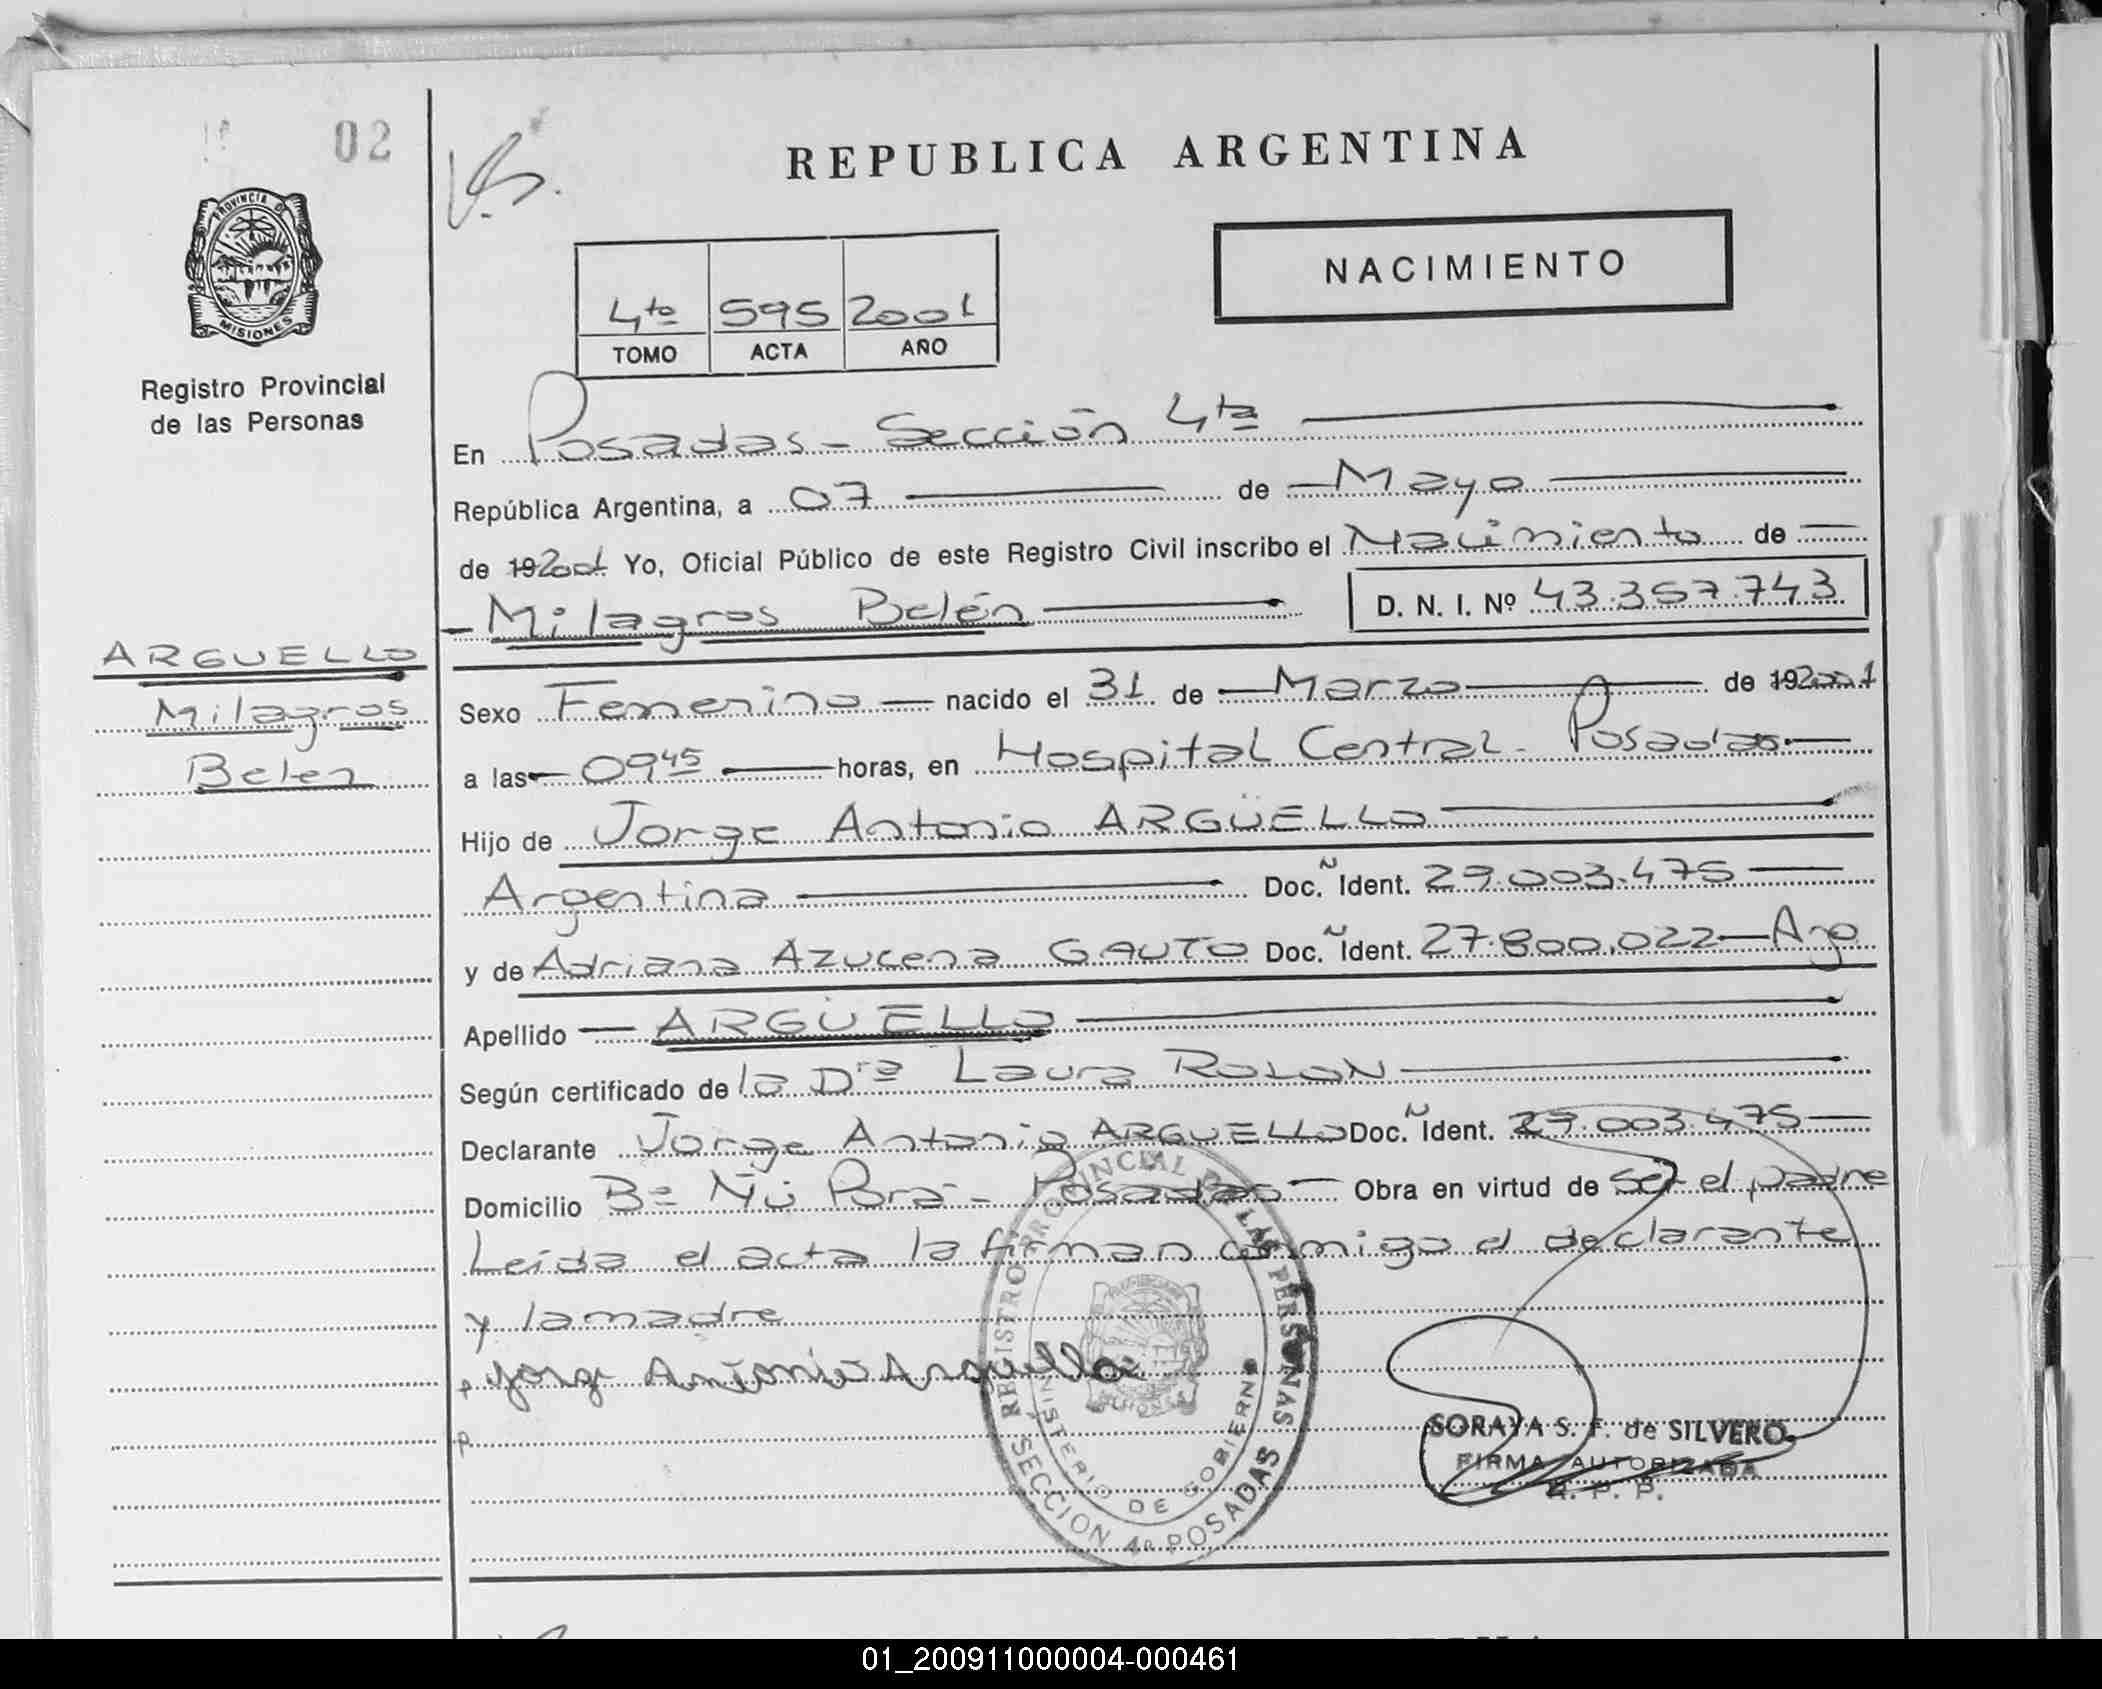 02
REPUBLICA ARGENTINA
PROVINCIA DE
MISIONES
Registro Provincial
de las Personas
NACIMIENTO
4to 595 2001
TOMO ACTA AÑO
En Posadas - Sección 4ta
República Argentina, a 07 de Mayo
de 192001 Yo, Oficial Público de este Registro Civil inscribo el Nacimiento de
Milagros Belén D. N. I. Nº 43.357.743
ARGUELLO
Milagros
Belen
Sexo Femenino nacido el 31 de Marzo de 192001
a las 09 45 horas, en Hospital Central - Posadas
Hijo de Jorge Antonio ARGÜELLO
Argentina Doc. Ñ Ident. 29.003.475
y de Adriana Azucena GAUTO Doc. Ñ Ident. 27.800.022 - Arg
Apellido ARGÜELLO
Según certificado de la Dra Laura ROLON
Declarante Jorge Antonio ARGUELLO Doc. Ñ Ident. 29.003.475
Domicilio Bº Ñú Porá - Posadas Obra en virtud de ser el padre
Leida el acta la firman conmigo el declarante
y la madre
Jorge Antonio Arguello
REGISTRO PROVINCIAL DE LAS PERSONAS
MINISTERIO DE GOBIERNO
SECCION 4a POSADAS
SORAYA S. F. de SILVERO
FIRMA AUTORIZADA
R. P. P.
01_200911000004-000461